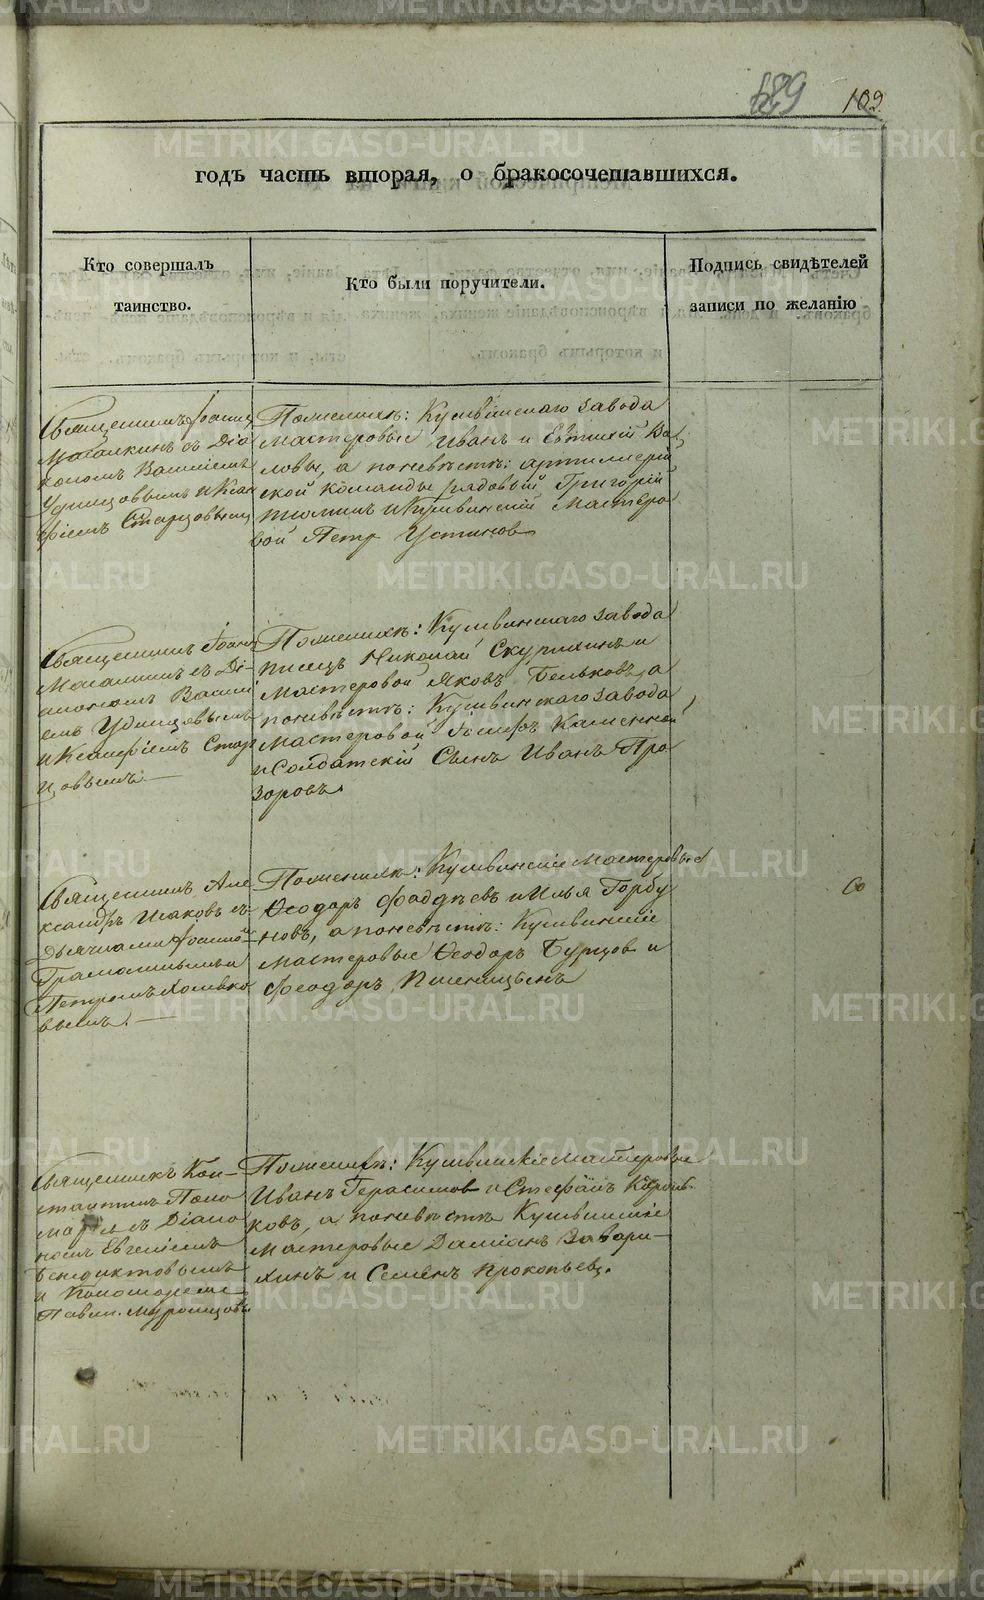 109
годъ часть вторая, о бракосочетавшихся.
Кто совершалъ
таинство.
Кто были поручители.
Подпись свидѣтелей
записи по желанію
Священникъ Іоаннъ
съ Діа
кономъ Василіемъ
Удинцовымъ и Ксен
Старцовымъ
По женихѣ: Кушвинскаго завода
мастеровые Иванъ и Евтихій Ва
ловы, а по невѣстѣ: артиллерій
ской команды рядовой Григорій
и Кушвинскій Мастеро
вой Петр Устинов
Священникъ Іоанн
съ Ді
акономъ Васил
емъ Удинцовымъ
и Стар
цовымъ
По женихѣ: Кушвинскаго завода
писецъ Николай Скурихинъ и
Мастеровой Яковъ Бельковъ, а
по невѣстѣ: Кушвинскаго завода
мастеровой Іосифъ Каменной
и Солдатскій Сынъ Иванъ Про
зоровъ
Священникъ Але
ксандръ Исаковъ съ
Дьячками Іоанно
Петромъ Хомяко
вымъ.
По женихѣ: Кушвинскіе Мастеровые
Ѳеодоръ Фаддѣевъ и Илья Горбу
новъ, а по невѣстѣ: Кушвинскіе
мастеровые Ѳеодоръ Бурцов и
Ѳеодоръ Пшеницынъ
Священникъ Кон-
стантинъ Поно
маревъ съ Діако
номъ Евгеніемъ
Бенедиктовымъ
и Пономаремъ
Павл. Муромцовы
По женихѣ: Кушвинскіе Мастеровые
Иванъ Герасимов и Стефанъ Король-
ковъ, а по невѣстѣ Кушвинскіе
мастеровые Даміанъ Завари-
хинъ и Семенъ Прокопьев.
METRIKI.GASO-URAL.RU